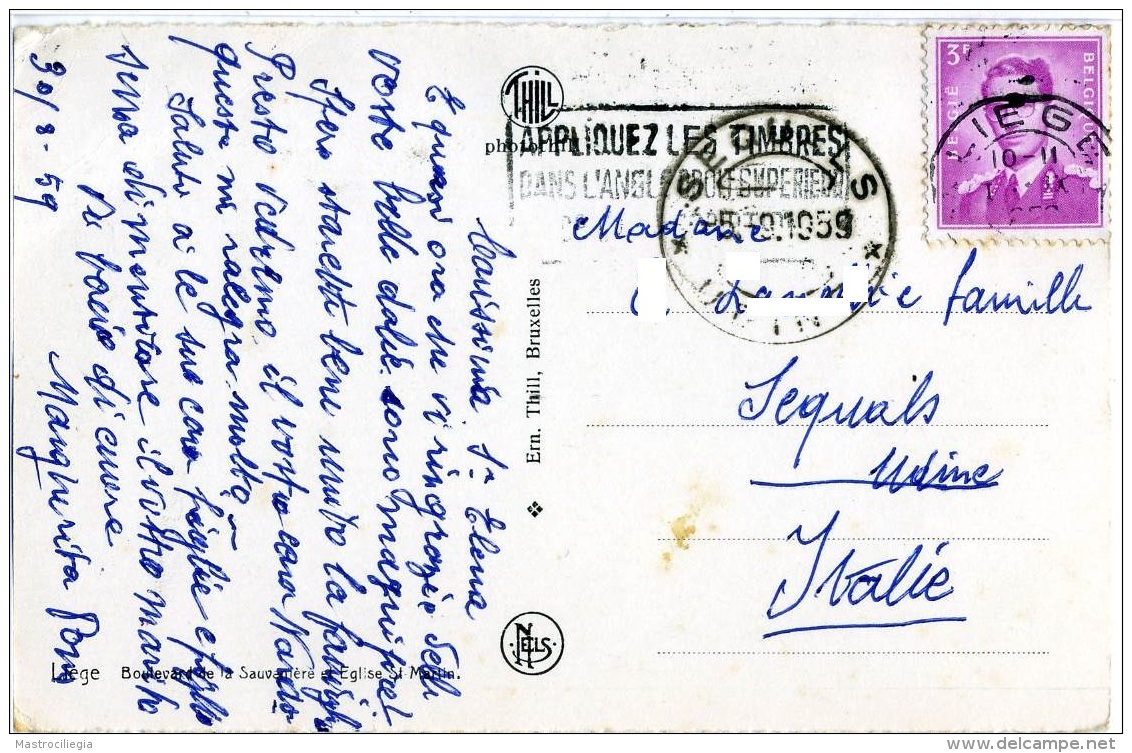 Carissima Sra Elena
È quasi ora che vi ringrazi delle
vostre belle dalie sono magnifiche!
Spero starete bene tutto la famiglia
Presto vedremo il vostro caro Nando
queste mi ralegra molto
Saluto a le sue care figlie e figlio
senza dimenticare il vostro marito
Vi bacio di cuore
Margherita
30/8-59
THILL
photothill
APPLIQUEZ LES TIMBRES
DANS L'ANGLE DROIT SUPERIEUR
SEQUALS
5.9.1959
3F
BELGIE
BELGIQUE
LIEGE
10-11
Madame
famille
Sequals
Udine
Italie
Ern. Thill, Bruxelles
NELS
Liège Boulevard de la Sauvenière et Eglise St-Martin.
Mastrociliegia
www.delcampe.net